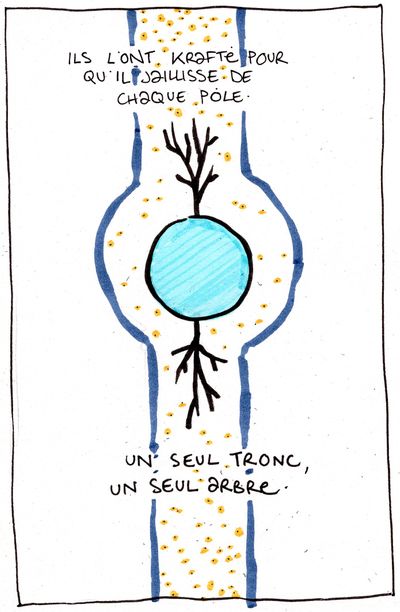 ILS L'ONT KRAFTÉ POUR
QU'IL JAILLISSE DE
CHAQUE PÔLE.
UN SEUL TRONC,
UN SEUL ARBRE.